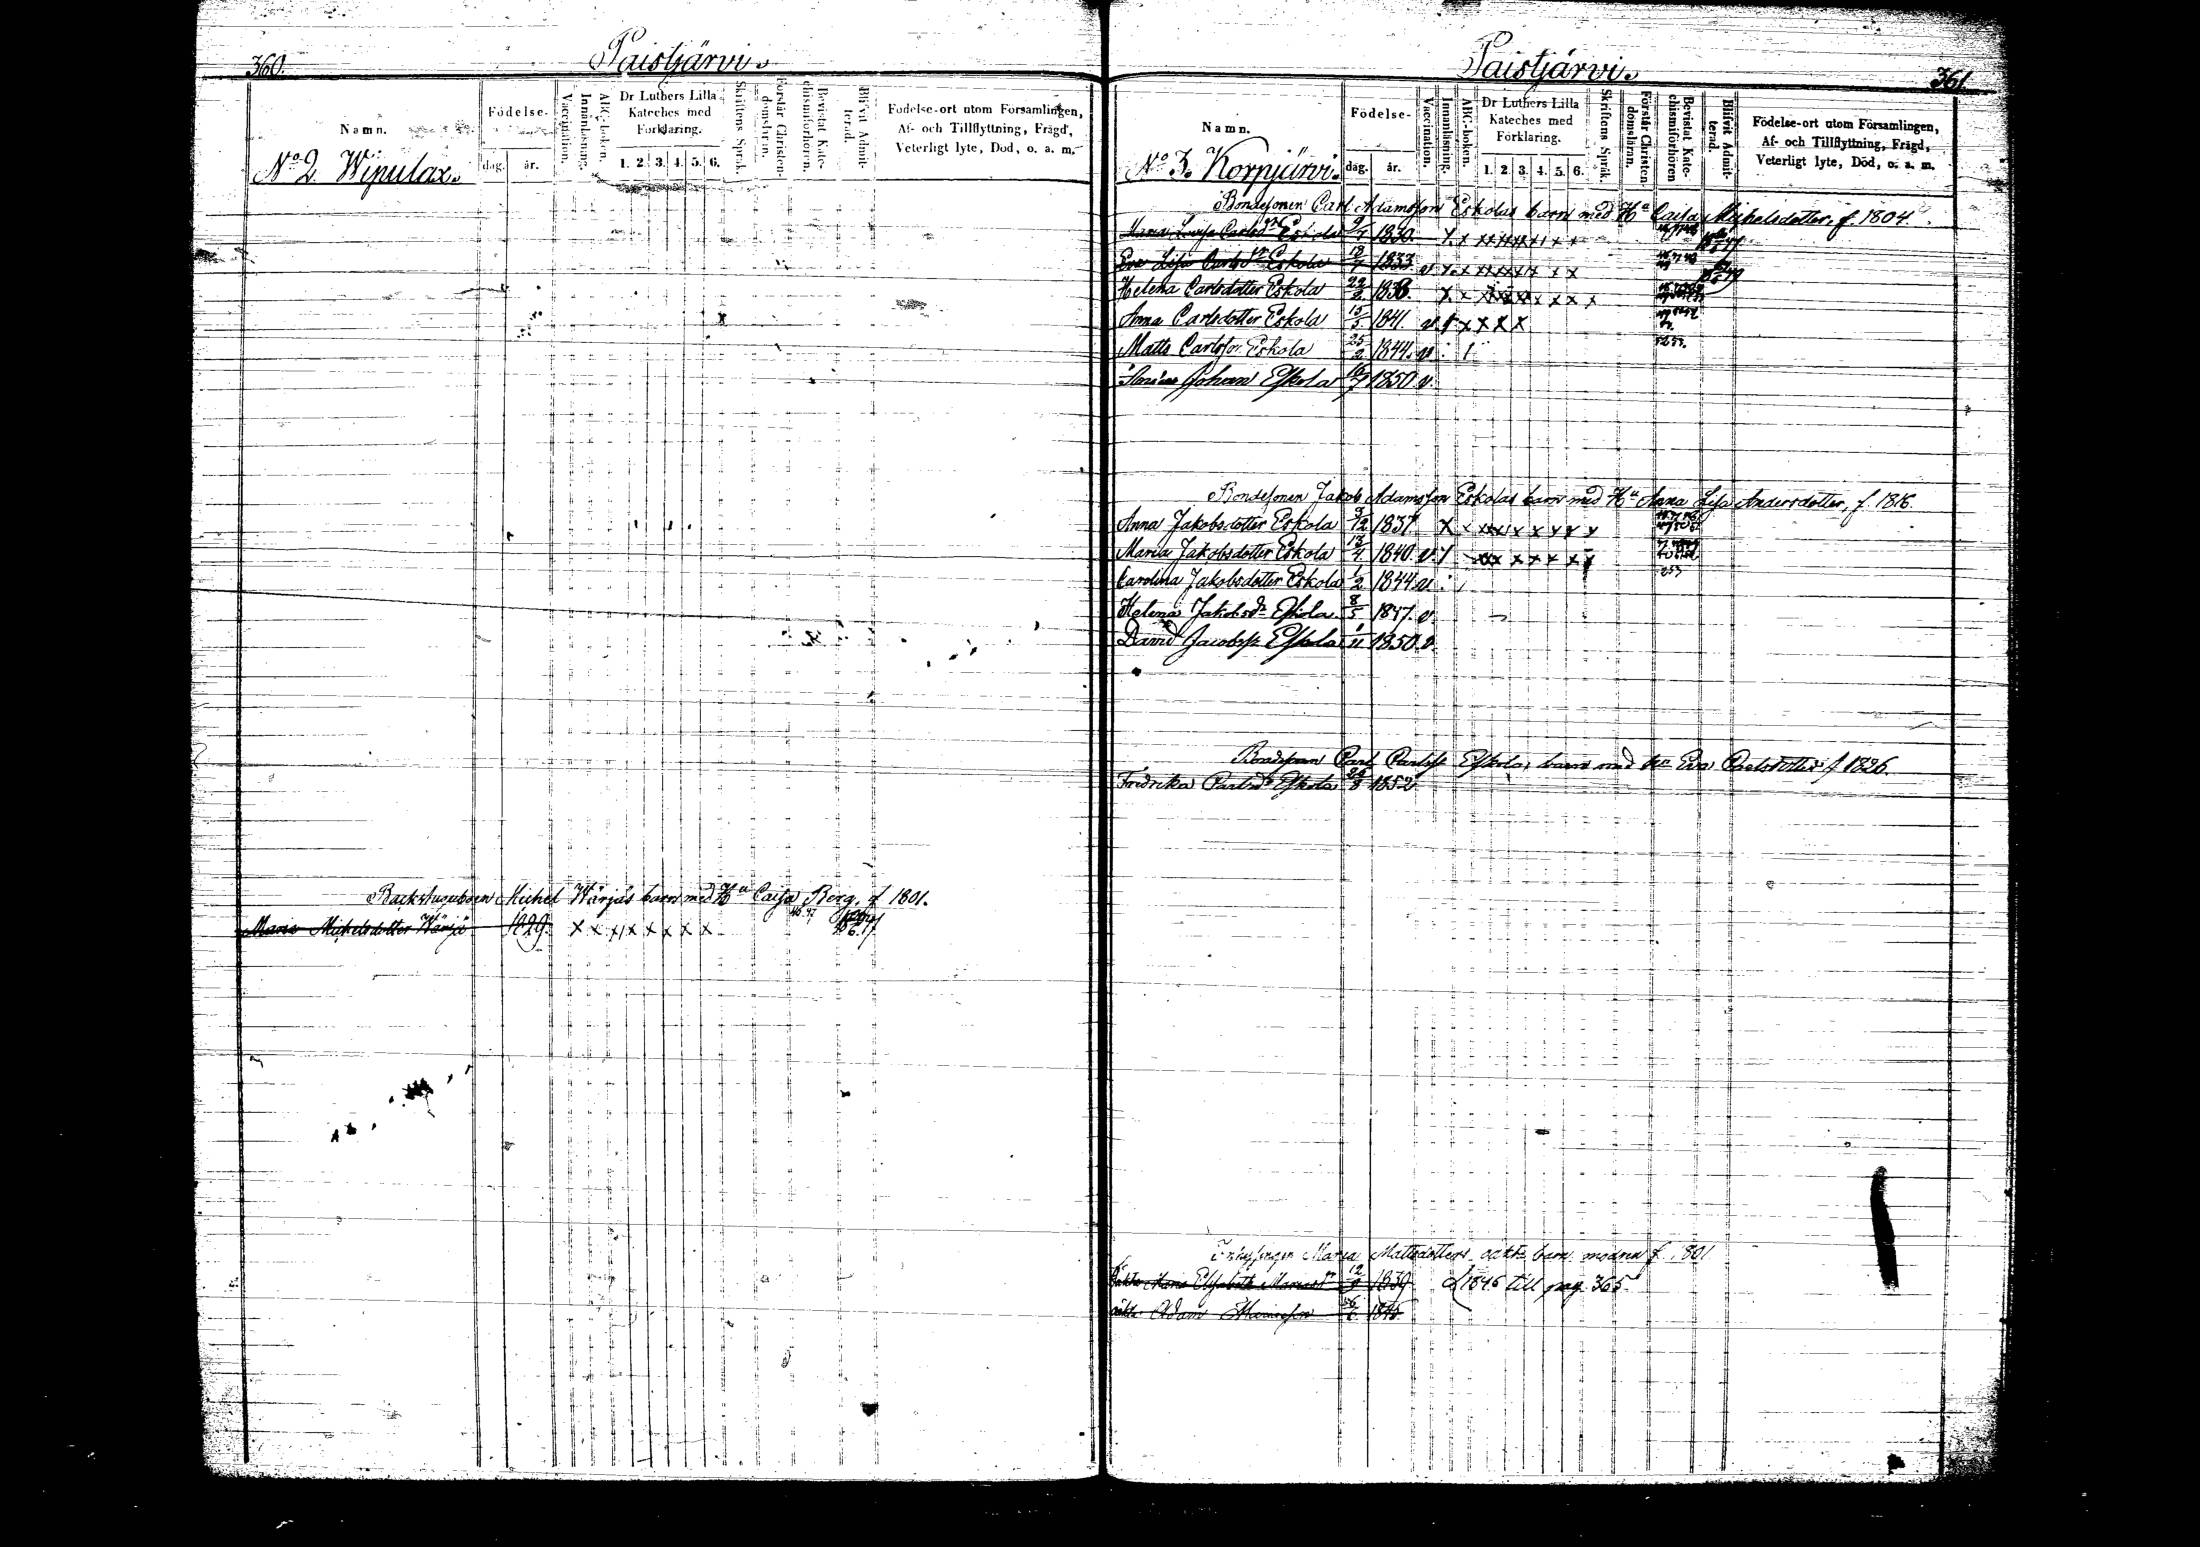 360.
Paistjärvi.
Namn.
Födelse-
dag. år.
Vaccination.
Innanläsning.
ABC-boken.
Dr Luthers Lilla
Kateches med
Förklaring.
1. 2. 3. 4. 5. 6.
Skriftens Språk.
Förstår Christen-
domsläran.
Bevistat Kate-
chismiförhören.
Blifvit Admit-
terad.
Födelse-ort utom Församlingen,
Af- och Tillflyttning, Frägd,
Veterligt lyte, Död, o. a. m.
No 2. Wipulax.
Backstuguboen Michel Wärjäs barn med Ha Caisa Berg, f 1801.
Maria Michelsdotter Wärjä 1829. x x x x x x x x
Paistjärvi.
361.
Namn.
Födelse-
dag. år.
Vaccination.
Innanläsning.
ABC-boken.
Dr Luthers Lilla
Kateches med
Förklaring.
1. 2. 3. 4. 5. 6.
Skriftens Språk.
Förstår Christen-
domsläran.
Bevistat Kate-
chismiförhören
Blifvit Admit-
terad.
Födelse-ort utom Församlingen,
Af- och Tillflyttning, Frägd,
Veterligt lyte, Död, o. a. m.
No 3. Korpjärvi.
Bondesonen Carl Adamsson Eskolas barn med Ha Caisa Michelsdotter, f. 1804.
Maria Lovisa Carlsdr Eskola 9/4 1830.
Eva Lisa Carlsdr Eskola 1833
Helena Carlsdotter Eskola 22/2 1838.
Anna Carlsdotter Eskola 15/5 1841. v x x x x
Matts Carlsson Eskola 25/2 1844. v
Johan Eskola 16/7 1850 v.
Bondesonen Jakob Adamsson Eskolas barn med Ha Anna Lisa Andersdotter, f. 1816.
Anna Jakobsdotter Eskola 9/12 1837
Maria Jakobsdotter Eskola 13/4 1840. v
Carolina Jakobsdotter Eskola 1/2 1844 v.
Helena Jakobsdr Eskola 8/5 1847. v.
David Jacobss Eskola 1/11 1850 v.
Bondesonen Carl Carlss Eskolas barn med hu Eva Carlsdotter f 1826.
Fredrika Carlsdr Eskola 25/8 1852
Maria Mattsdotters oäkta barn modren f. 1801
Oäkta Anna Elisabeth Mariasdr 12/9 1839 1846 till pag. 365.
oäkta Adam